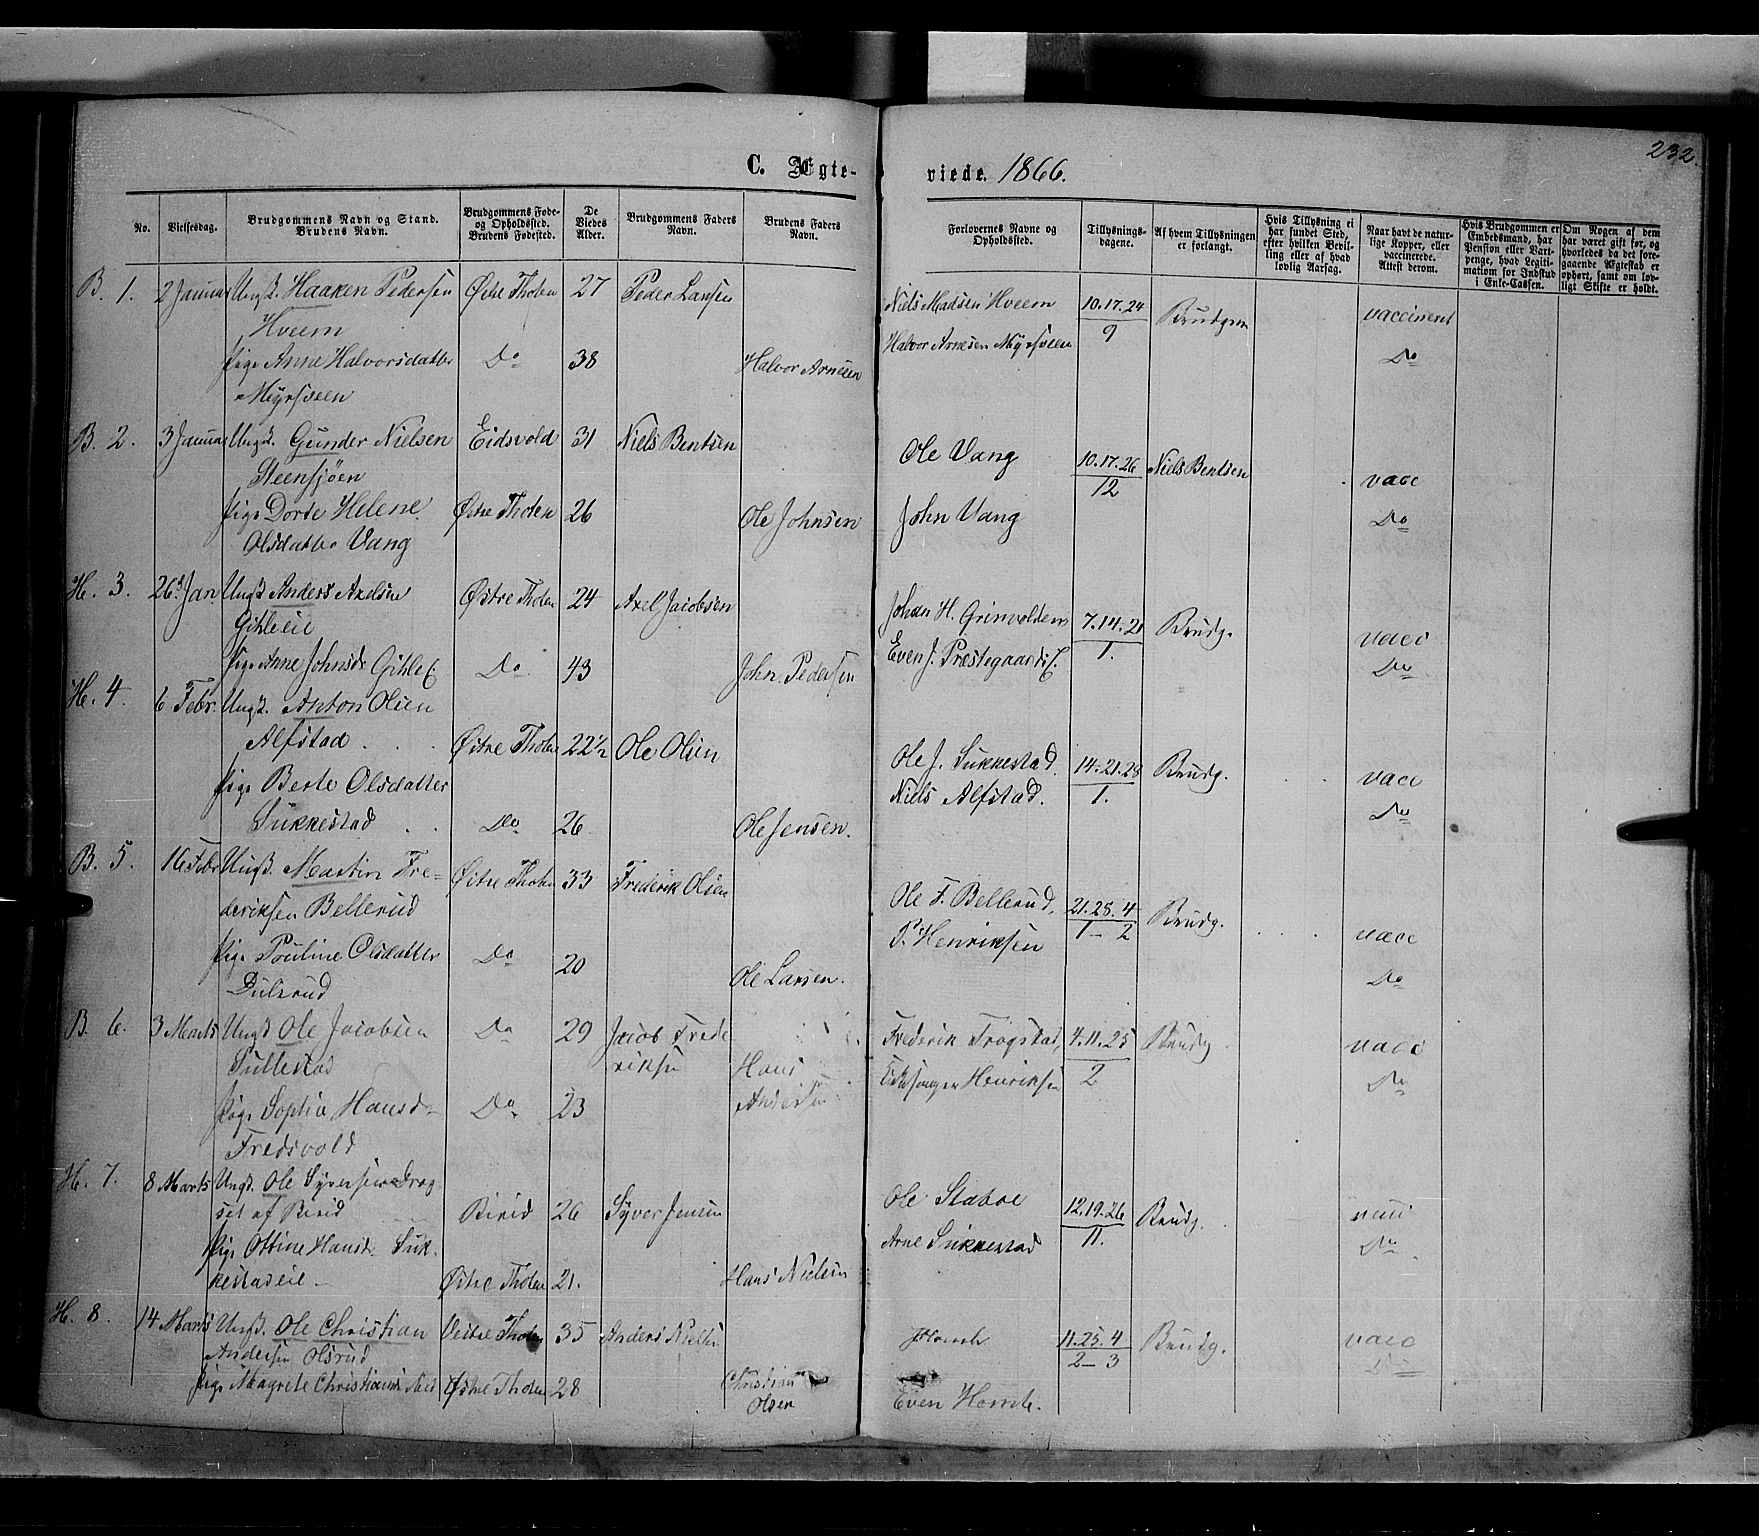 232.
C. Ægte-
viede. 1866.
No.
Vielsesdag.
Brudgommens Navn og Stand.
Brudens Navn.
Brudgommens Føde-
og Opholdssted.
Brudens Fødested.
De
Viedes
Alder.
Brudgommens Faders
Navn.
Brudens Faders
Navn.
Forlovernes Navne og
Opholdssted.
Tillysnings-
dagene.
Af hvem Tillysningen
er forlangt.
Hvis Tillysning ei
har fundet Sted,
efter hvilken Bevil-
ling eller af hvad
lovlig Aarsag.
Naar havt de natur-
lige Kopper, eller
vaccinerede.
Attest derom.
Hvis Brudgommen er
Embedsmand, har
Pension eller Vart-
penge, hvad Legiti-
mation for Indskud
i Enke-Cassen.
Om Nogen af dem
har været gift før, og
hvorledes da det fore-
gaaende Ægteskab er
ophørt, samt om lov-
ligt Skifte er holdt.
B. 1. 2 Januar Ungk. Haaken Pedersen Østre Thoten 27 Peder Larsen Niels Madsen Hveem 10.17.24 Brudgom vaccineret
Hveem Halvor Arnesen Myrsveen 9
Pige Anne Halvorsdatter Do 38 Halvor Arnesen Do
Myrsveen
B. 2. 3 Januar Ungk. Gunder Nielsen Eidsvold 31 Niels Bentsen Ole Vang 10.17.26 Niels Bentsen vacc
Steensjøen 12
Pige Dorte Helene Østre Thoten 26 Ole Johnsen John Vang Do
Olsdatter Vang
H. 3. 26d Jan Ungk Anders Axelsen Østre Thoten 24 Axel Jacobsen Johan H. Grinvolden 7.14.21 Brudg. vacc
Gihleeie 1.
Pige Anne Johnsdr Gihle E Do 43 John Pedersen Even J. Præstegaards E. Do
H. 4. 6 Febr. Ungk. Anton Olsen
Alfstad Østre Thoten 22½ Ole Olsen Ole J. Sukkestad 14.21.28 Brudg. vacc
Pige Berte Olsdatter Niels Alfstad. 1.
Sukkestad Do 26 Ole Jensen. Do
B. 5. 16 Febr Ungk. Martin Fre- Østre Thoten 33 Frederik Olsen Ole F. Bellerud. 21.28.4 Brudg. vacc
deriksen Bellerud 1 - 2
Pige Pouline Olsdatter Do 20 Ole Larsen. P. Henriksen Do
Dulsrud
B. 6. 3 Marts Ungk Ole Jacobsen Do 29 Jacob Frede Frederik Frogstad, 4.11.25 Brudg vacc
Sullestad riksen 2
Pige Sophie Hansd Do 23 Hans Andersen Kirkesanger Henriksen Do
Fredsvold
H. 7. 8 Marts Ungk. Ole Syversen Drog
set af Birid Birid 26 Syver Jensen Ole Staboe 12.19.26 Brudg. vacc
Pige Ottine Hansd. Suk- Arne Sukkestad 11. Do
kestadeie Østre Thoten 21. Hans Nielsen
H. 8. 14 Marts Ungk. Ole Christian Vestre Thoten 35 Anders Nielsen 11.25.4 Brudg. vacc
Andersen Olsrud 2 - 3 Do
Pige Magrete Østre Thoten 28 Christian
Olsen Even